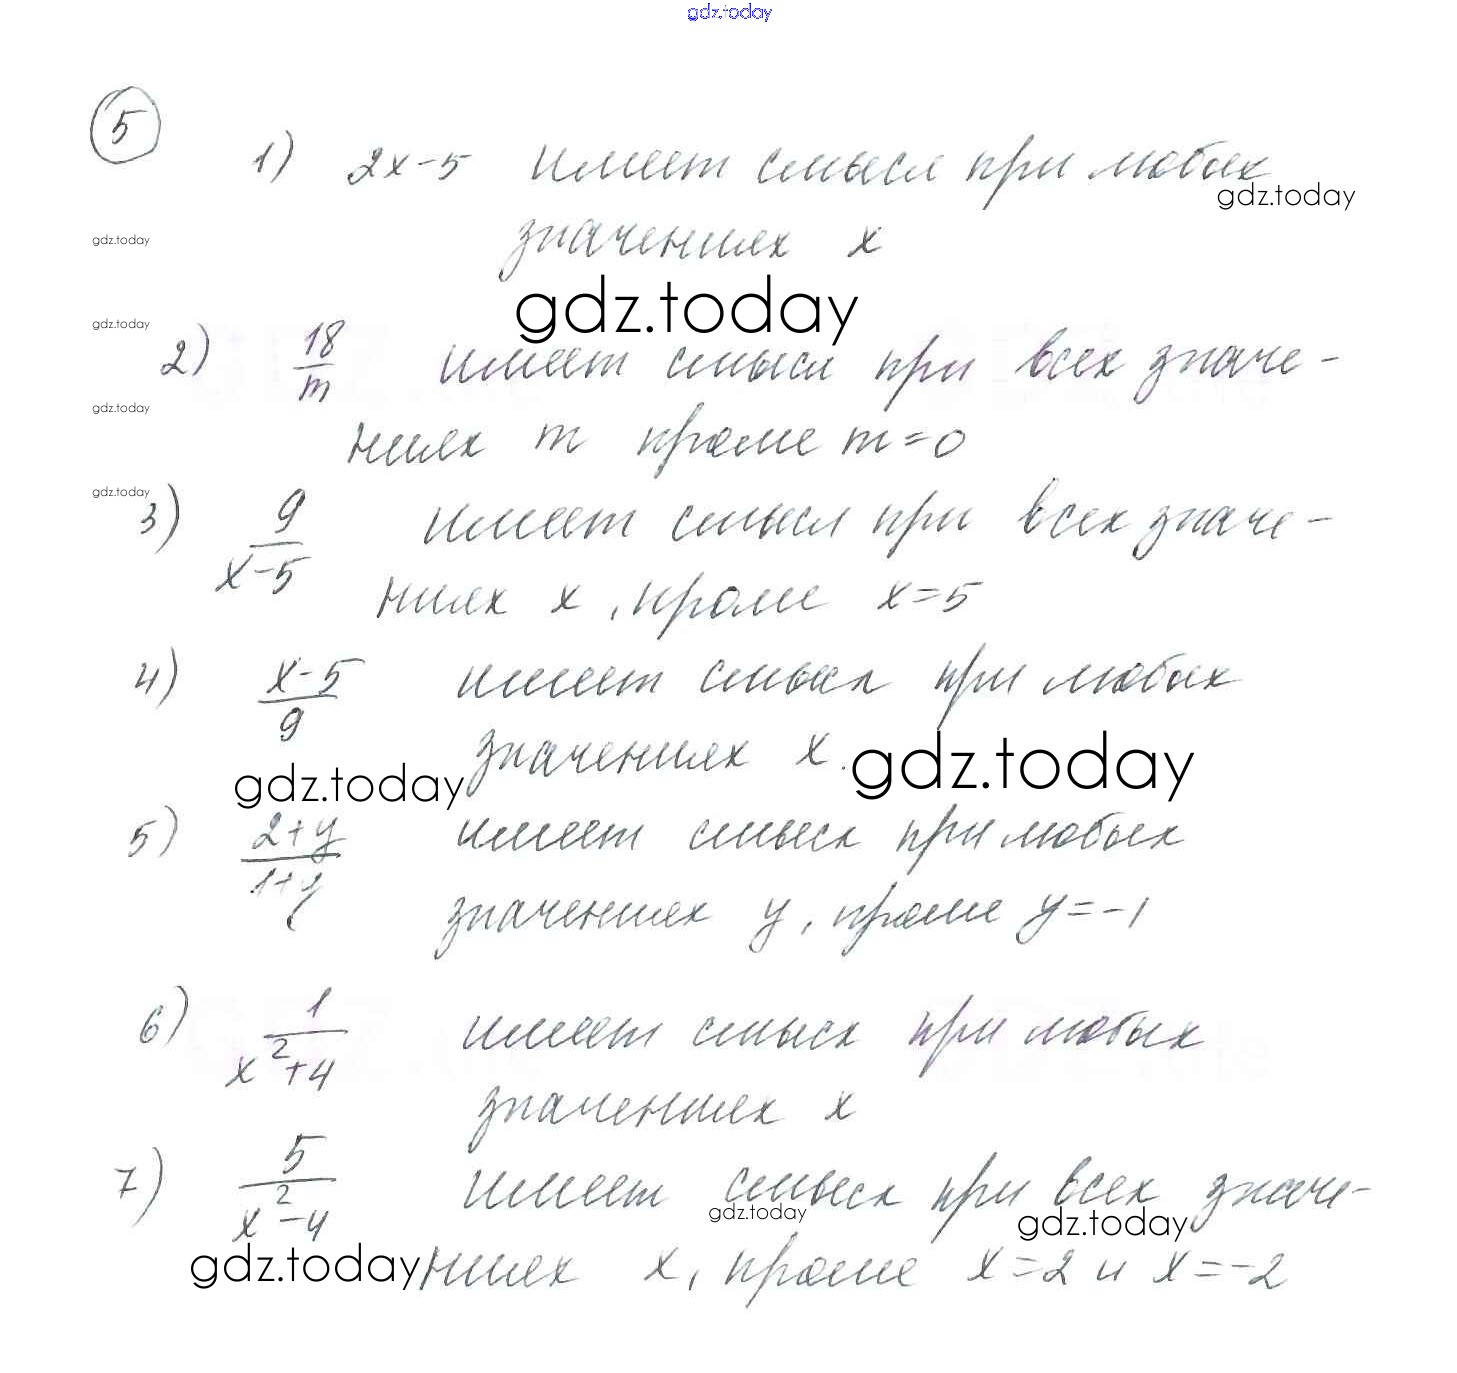 gdz.today
5
1) 2x-5 имеет смысл при любых
gdz.today
значениях x
gdz.today
gdz.today
gdz.today
2) 18/m имеет смысл при всех значе-
gdz.today
ниях m кроме m=0
gdz.today
3) 9/(x-5) имеет смысл при всех значе-
ниях x, кроме x=5
4) (x-5)/9 имеет смысл при любых
значениях x.
gdz.today
gdz.today
5) (2+y)/(1+y) имеет смысл при любых
значениях y, кроме y=-1
6) 1/(x²+4) имеет смысл при любых
значениях x
7) 5/(x²-4) имеет смысл при всех значе-
gdz.today
gdz.today
gdz.today
ниях x, кроме x=2 и x=-2